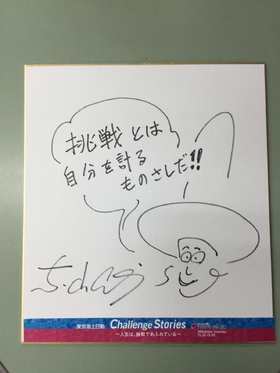 挑戦とは
自分を計る
ものさしだ!!
東京海上日動 Challenge Stories
〜人生は、挑戦であふれている〜